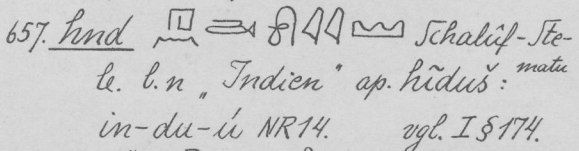 657. hnd 𓉔𓈖𓂧𓍯𓇌𓈉 Schalûf-Ste-
le. l.n „Indien“ ap. hĩduš: matu
in-du-ú NR14. vgl. I § 174.